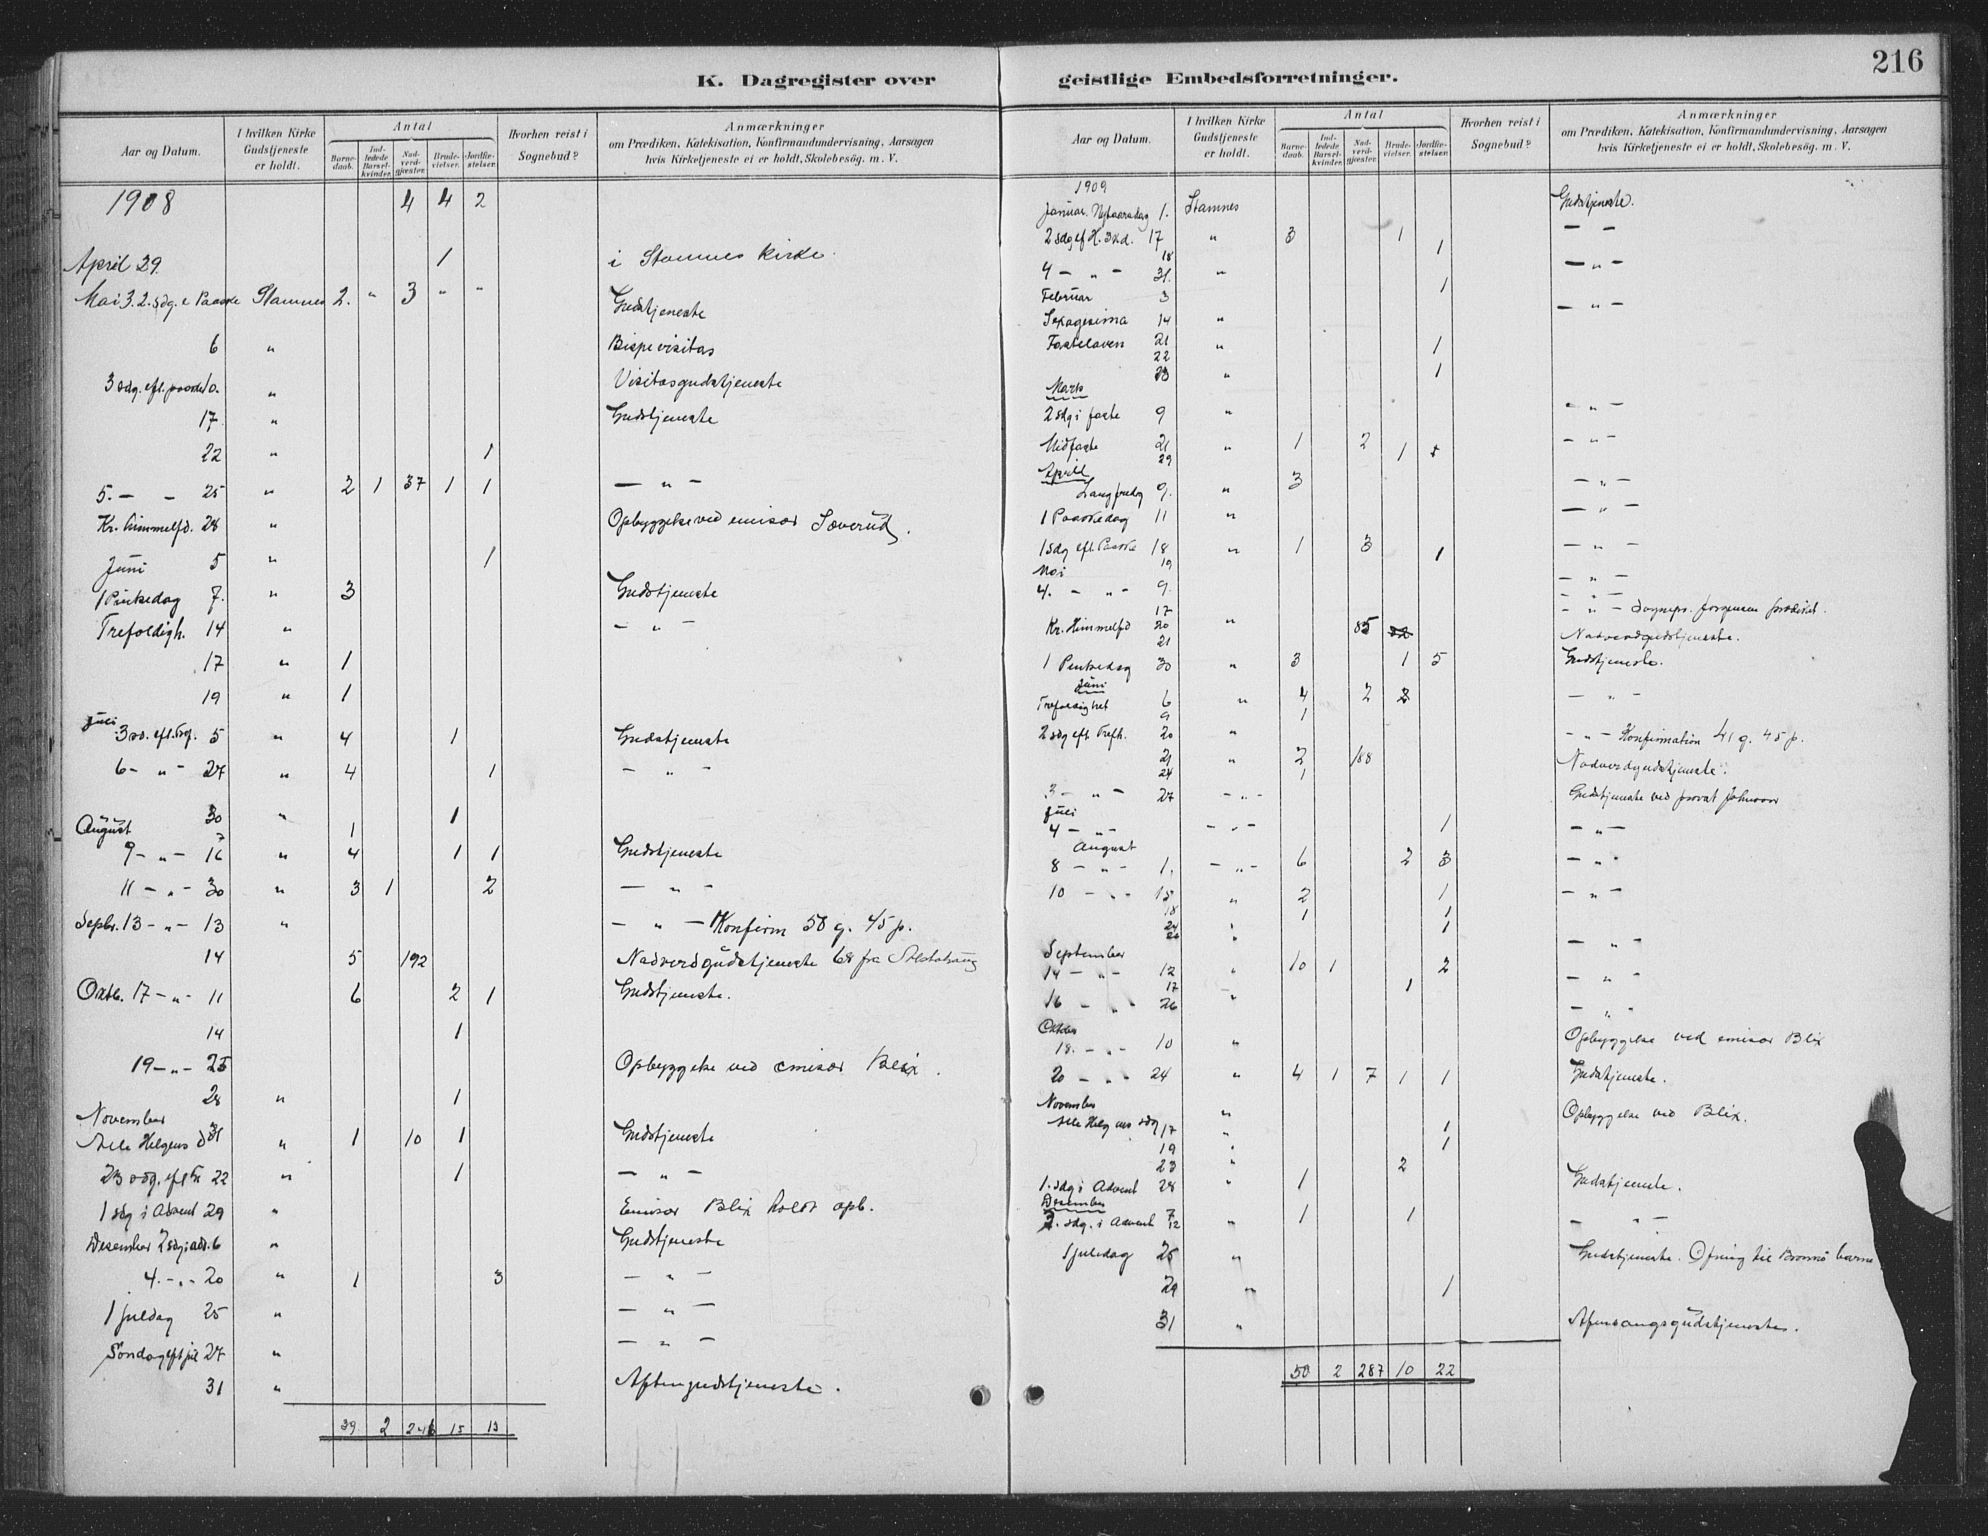 K. Dagregister over
Aar og Datum.
I hvilken Kirke Gudstjeneste er holdt.
Antal
Barnedaab.
Indledede Barselkvinder.
Nadverdgjæster.
Brudevielser.
Jordfæstelser.
Hvorhen reist i Sognebud?
Anmærkninger
om Prædiken, Katekisation, Konfirmandundervisning, Aarsagen
hvis Kirketjeneste ei er holdt, Skolebesøg. m. V.
1908 4 4 2
April 29. 1 i Stamnes Kirke
Mai 3. 2. sdg. e Paaske Stamnes 2. " 3 " " Gudstjeneste
6 " Bispevisitas
3 sdg. eft. paaske 10. " Visitasgudstjeneste
17. " Gudstjeneste
22 " 1
5. — — 25 " 2 1 37 1 1 — " —
Kr. himmelfd. 28 " Opbyggelse ved emisær Sæverud.
Juni 5 " 1
1 Pintsedag 7. " 3 Gudstjeneste
Trefoldigh. 14 " — " —
17 " 1
19 " 1
Juli
3 sd. eft. Tref. 5 " 4 1 Gudstjeneste
6 — " — 27 " 4 1 — " —
30 " 1
August 7 1
9 — " — 16 " 4 1 1 Gudstjeneste
11 — " — 30 " 3 1 2 — " —
Septbr. 13 — " — 13 " — " — Konfirm 58 g. 45 p.
14 5 192 Nadverdgudstjeneste 68 fra Alstahaug
Oktb. 17 — " — 11 6 2 1 Gudstjeneste.
14 1
19 — " — 25 Opbyggelse ved emisær Blix.
28 " 1
November
Alle Helgens d 31 " 1 10 1 Gudstjeneste
23 sdg. eft Tr 22 " 1 — " —
1 sdg i Advent 29 " Emisær Blix holdt opb.
Desember 2 sdg i adv. 6 " Gudstjeneste
4. — " — 20 " 1 3 — " —
1 juledag 25 " — " —
Søndag eft jul 27 " — " —
31 " Aftengudstjeneste.
39 2 248 15 13
geistlige Embedsforretninger.
216
Aar og Datum.
I hvilken Kirke Gudstjeneste er holdt.
Antal
Barnedaab.
Indledede Barselkvinder.
Nadverdgjæster.
Brudevielser.
Jordfæstelser.
Hvorhen reist i Sognebud?
Anmærkninger
om Prædiken, Katekisation, Konfirmandundervisning, Aarsagen
hvis Kirketjeneste ei er holdt, Skolebesøg. m. V.
1909
Januar. Nytaarsdag 1. Stamnes Gudstjeneste.
2 sdg ef H. 3 kd. 17 " 3 1 — —
18 1
4 — " — 31. " — " —
Februar 3 1
Sexagesima 14 " — " —
Fastelaven 21 "
22 1
23 " 1
Marts
2 sdg i faste 9 " — " —
Midfaste 21 " 1 2 — " —
29 1 1
April
Langfredag 9. " 3 — " —
1 Paaskedag 11 " — " —
1 sdg eft Paaske 18 " 1 3 — " —
19 1
Mai
4. — " — 9. — " —
17 — " — Sogneps. Jørgensen prædiket.
Kr. Himmelfd 20 " 85 Nadverdgudstjeneste.
21
1 Pintsedag 30 " 3 1 5 Gudstjeneste.
Juni
Trefoldighet 6 " 4 2 2 — " —
9 1
2 sdg eft Trefh. 20 " — " — Konfirmation 41 g. 45 p.
21 " 2 188 Nadverdgudstjeneste.
24 1
3 — " — 27 — " — Gudstjeneste ved provst Johnson
Juli
4 — " — — " — 1 — " —
August
8 — " — 1. — " — 6 2 3 — " —
10 — " — 15 " 2 1 — " —
18 1 1
24 " 1
26 "
September — " —
14 — " — 12 " 10 1 2
17 1 — " —
16 — " — 26 " — " —
Oktober
18. — " — 10 " Opbyggelse ved emisær Blix
20 — " — 24 " 4 1 7 1 1 Gudstjeneste.
November " Opbyggelse ved Blix.
Alle Helgens sdg 17 " 1
19 " 1
23 " 2
1. sdg i Advent 28 " 1 Gudstjeneste.
Desember
2. sdg. i Advent 7 1 1
12 " — " —
1 juledag 25 " Gudstjeneste. Ofring til Brønnø barne
29 " 1
31 " Aftensangsgudstjeneste.
50 2 287 10 22